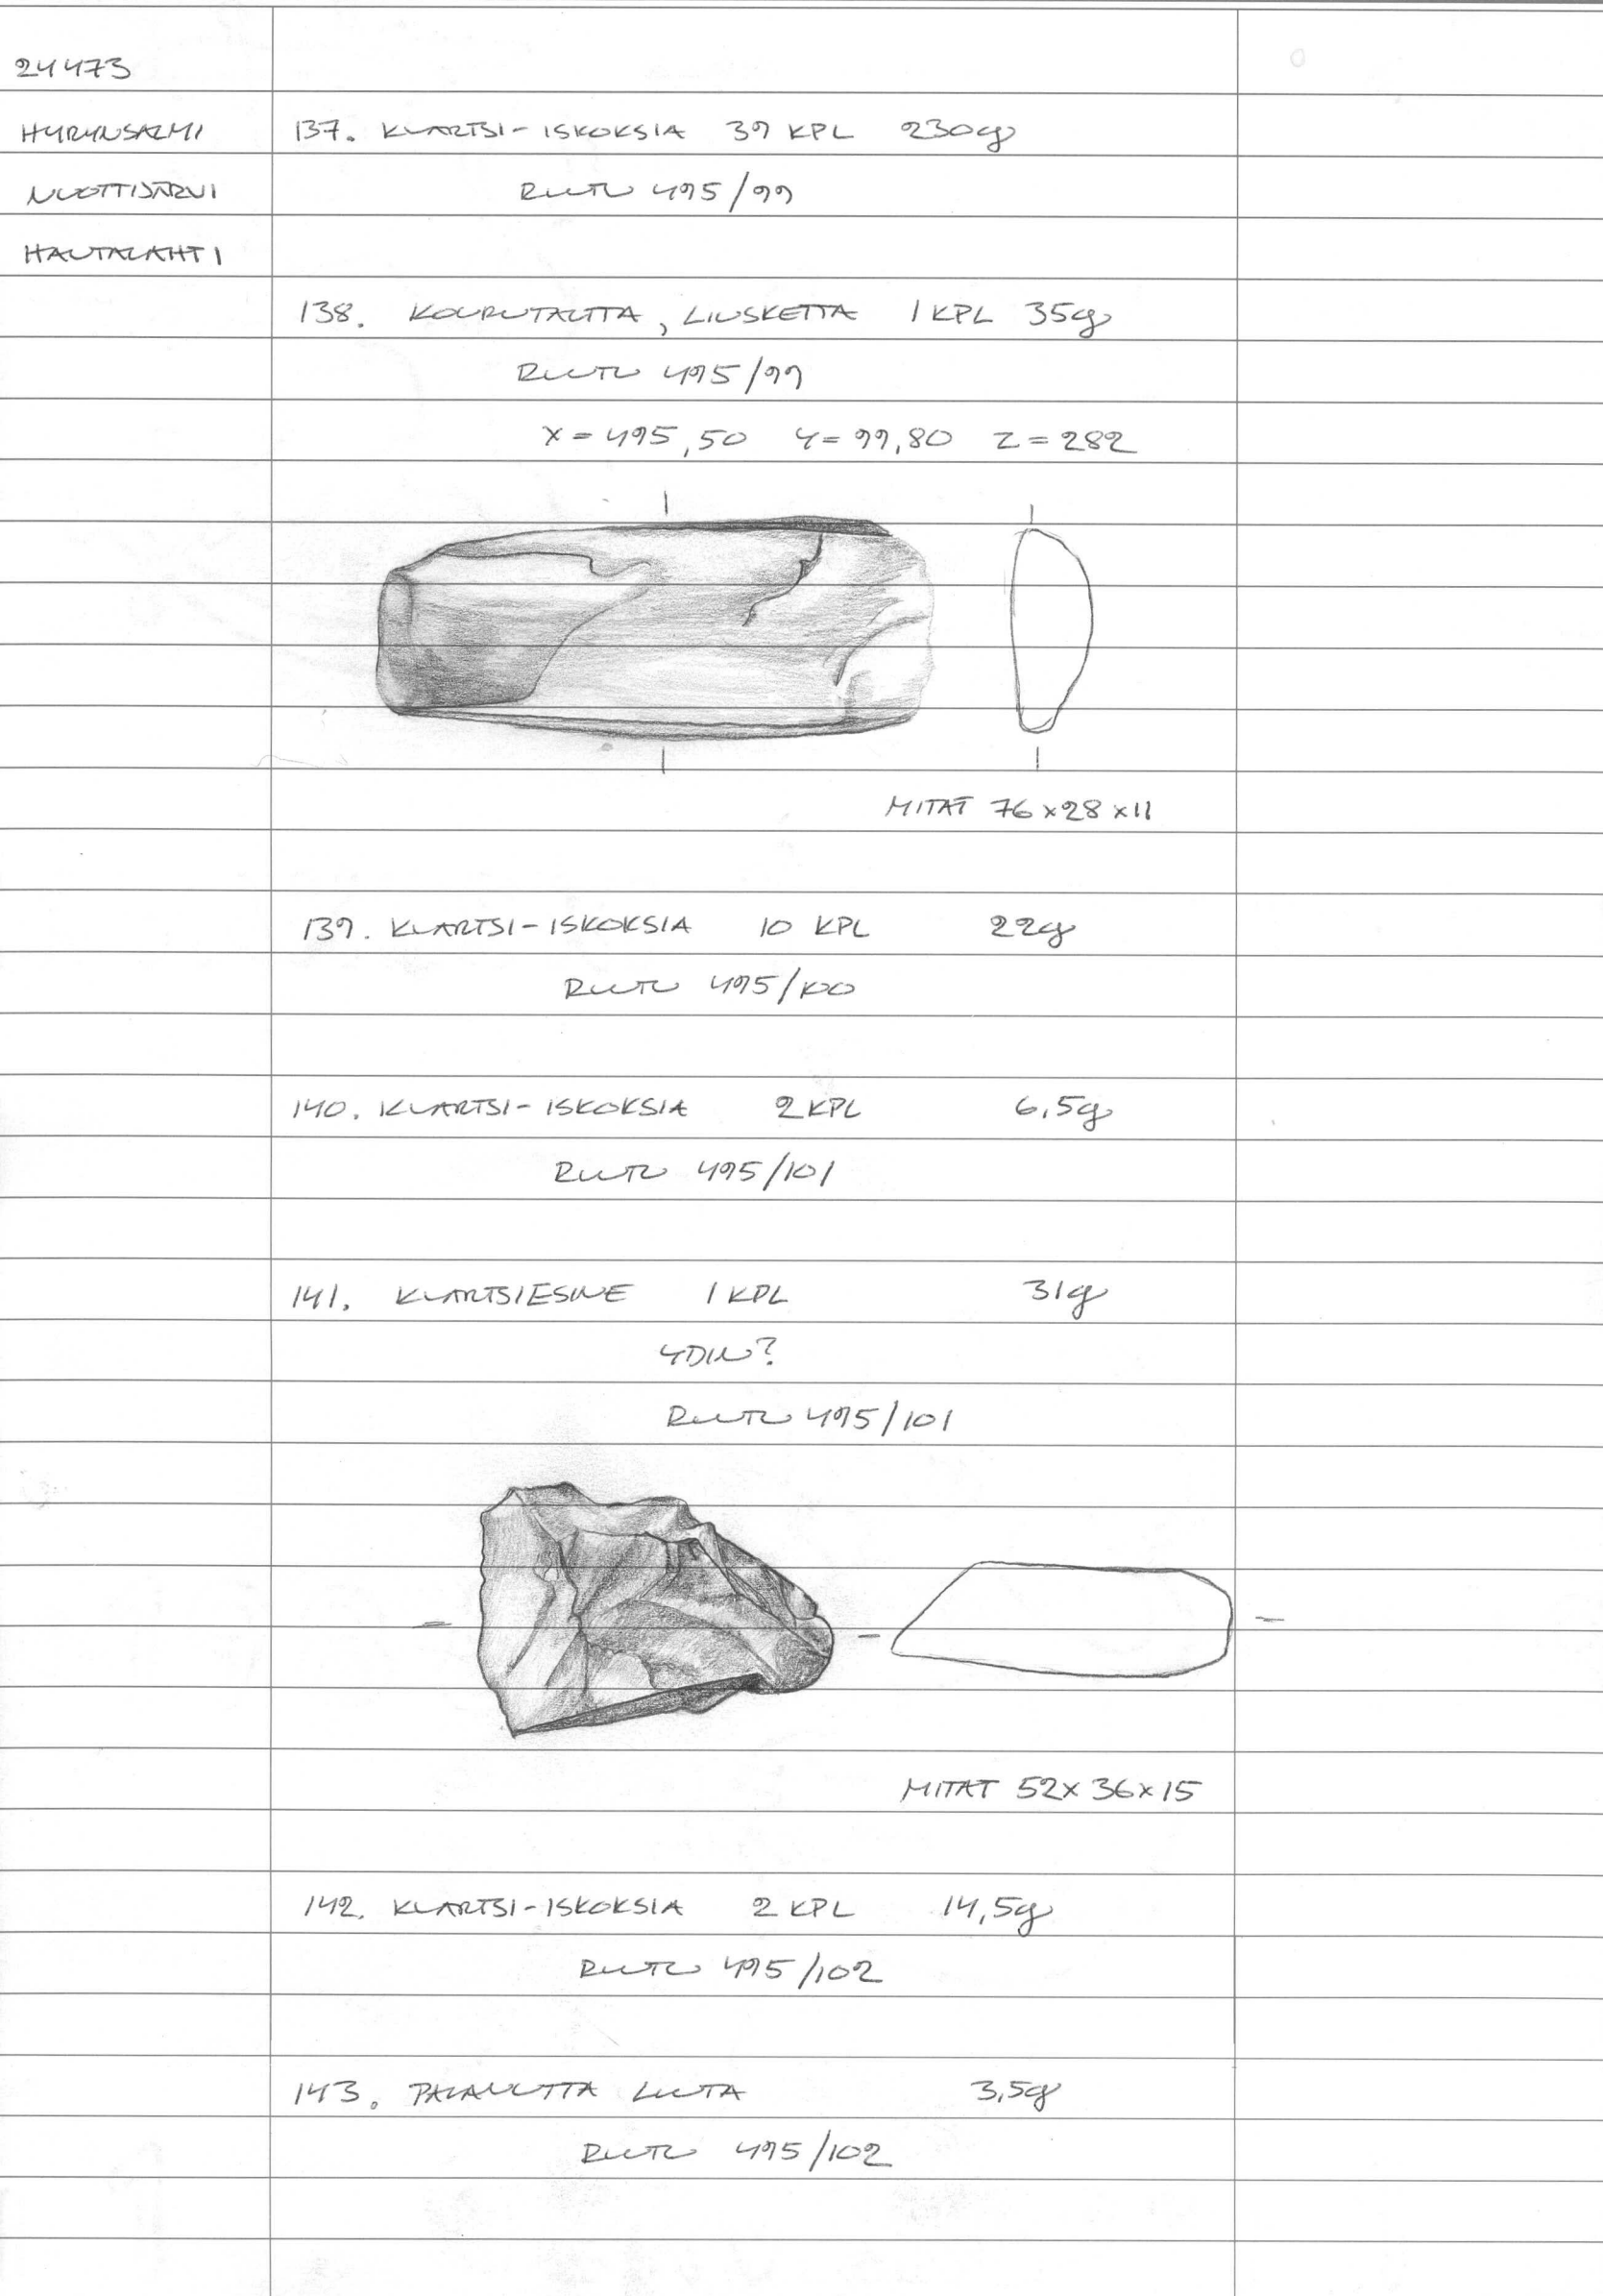 24473
HYRYNSALMI
NUOTTIJÄRVI
HAUTALAHTI
137. KVARTSI-ISKOKSIA 39 KPL 230g
RUUTU 495/99
138. KOURUTALTTA, LIUSKETTA 1 KPL 35g
RUUTU 495/99
X = 495,50 Y = 99,80 Z = 282
MITAT 76x28x11
139. KVARTSI-ISKOKSIA 10 KPL 22g
RUUTU 495/100
140. KVARTSI-ISKOKSIA 2 KPL 6,5g
RUUTU 495/101
141. KVARTSIESINE 1 KPL 31g
YDIN?
RUUTU 495/101
MITAT 52x36x15
142. KVARTSI-ISKOKSIA 2 KPL 14,5g
RUUTU 495/102
143. PALANUTTA LUUTA 3,5g
RUUTU 495/102